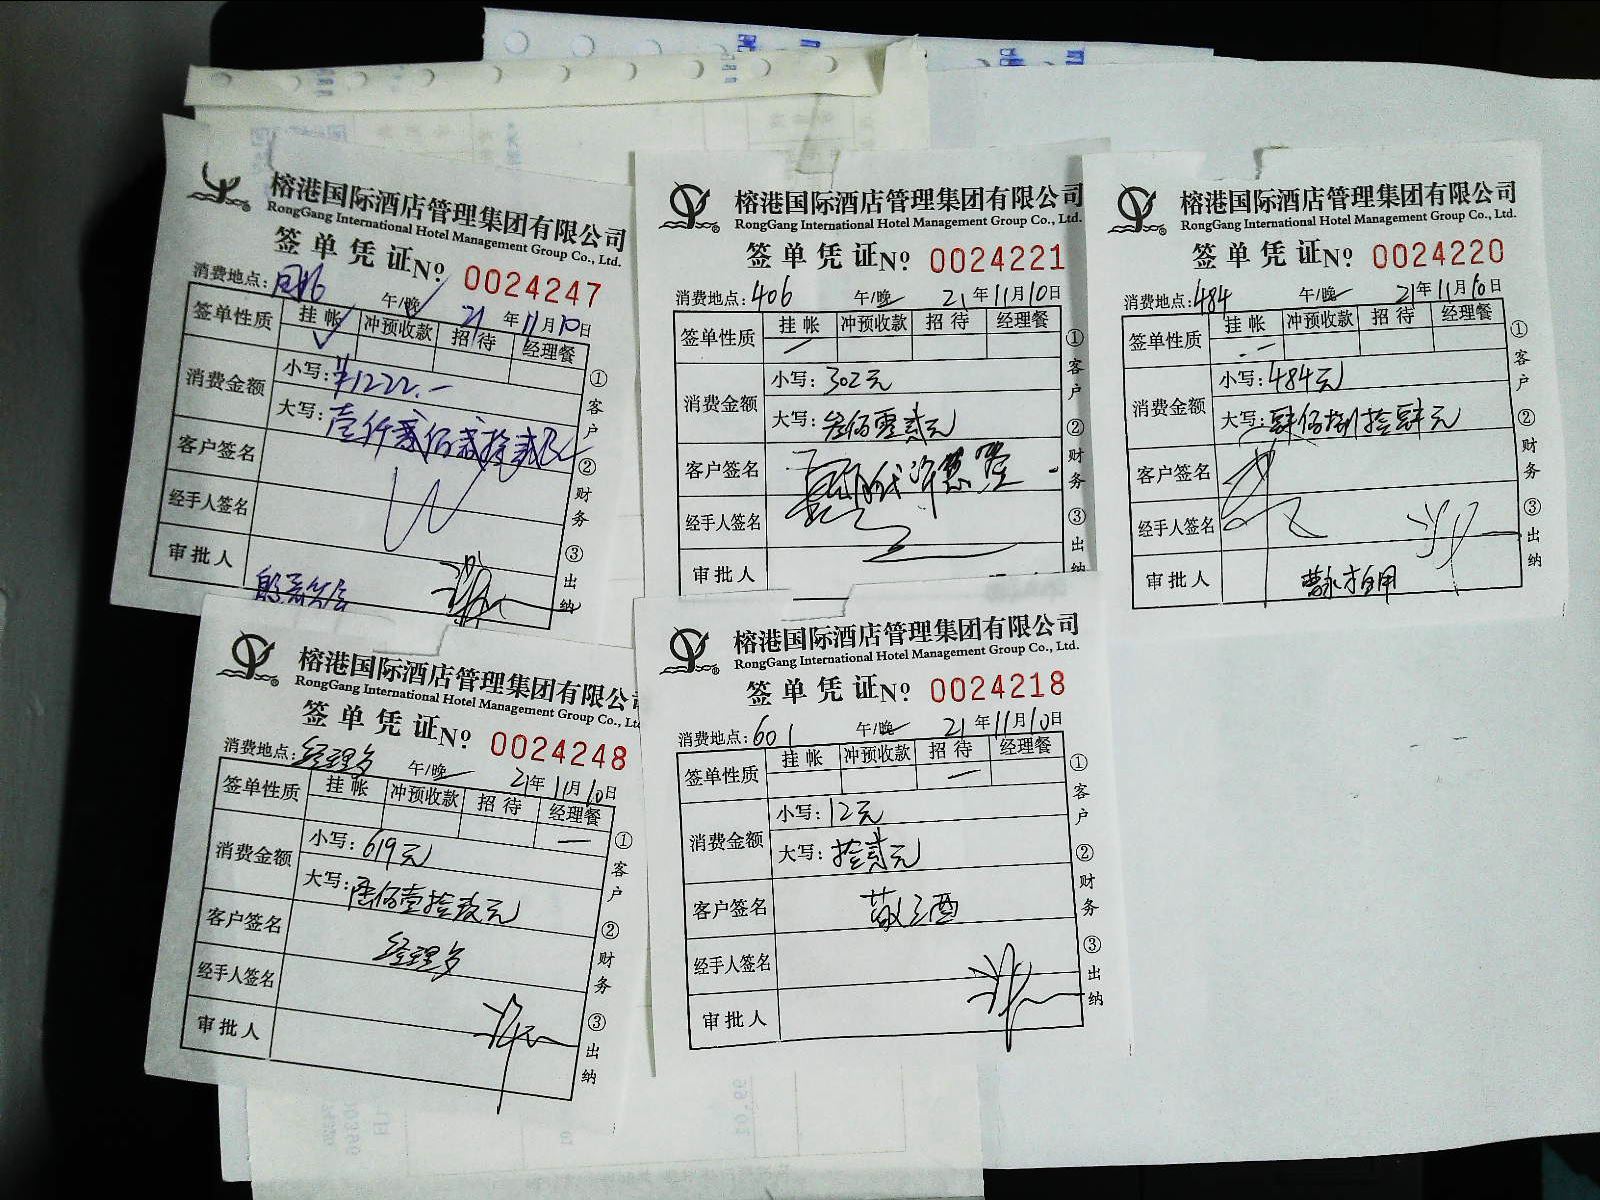 榕港国际酒店管理集团有限公司
RongGang International Hotel Management Group Co., Ltd.
签单凭证 Nº 0024247
消费地点: 午/晚 21年11月10日
签单性质 挂帐 冲预收款 招待 经理餐
消费金额 小写: ¥1222.—
大写: 壹仟贰佰贰拾贰元
客户签名
经手人签名
审批人
①客户 ②财务 ③出纳
榕港国际酒店管理集团有限公司
RongGang International Hotel Management Group Co., Ltd.
签单凭证 Nº 0024221
消费地点: 406 午/晚 21年11月10日
签单性质 挂帐 冲预收款 招待 经理餐
消费金额 小写: 302元
大写: 叁佰零贰元
客户签名
经手人签名
审批人
①客户 ②财务 ③出纳
榕港国际酒店管理集团有限公司
RongGang International Hotel Management Group Co., Ltd.
签单凭证 Nº 0024220
消费地点: 484 午/晚 21年11月10日
签单性质 挂帐 冲预收款 招待 经理餐
消费金额 小写: 484元
大写: 肆佰捌拾肆元
客户签名
经手人签名
审批人
①客户 ②财务 ③出纳
榕港国际酒店管理集团有限公司
RongGang International Hotel Management Group Co., Lt
签单凭证 Nº 0024248
消费地点: 经理 午/晚 21年11月10日
签单性质 挂帐 冲预收款 招待 经理餐
消费金额 小写: 619元
大写: 陆佰壹拾玖元
客户签名 经理
经手人签名
审批人
①客户 ②财务 ③出纳
榕港国际酒店管理集团有限公司
RongGang International Hotel Management Group Co., Ltd.
签单凭证 Nº 0024218
消费地点: 601 午/晚 21年11月10日
签单性质 挂帐 冲预收款 招待 经理餐
消费金额 小写: 12元
大写: 拾贰元
客户签名 敬酒
经手人签名
审批人
①客户 ②财务 ③出纳